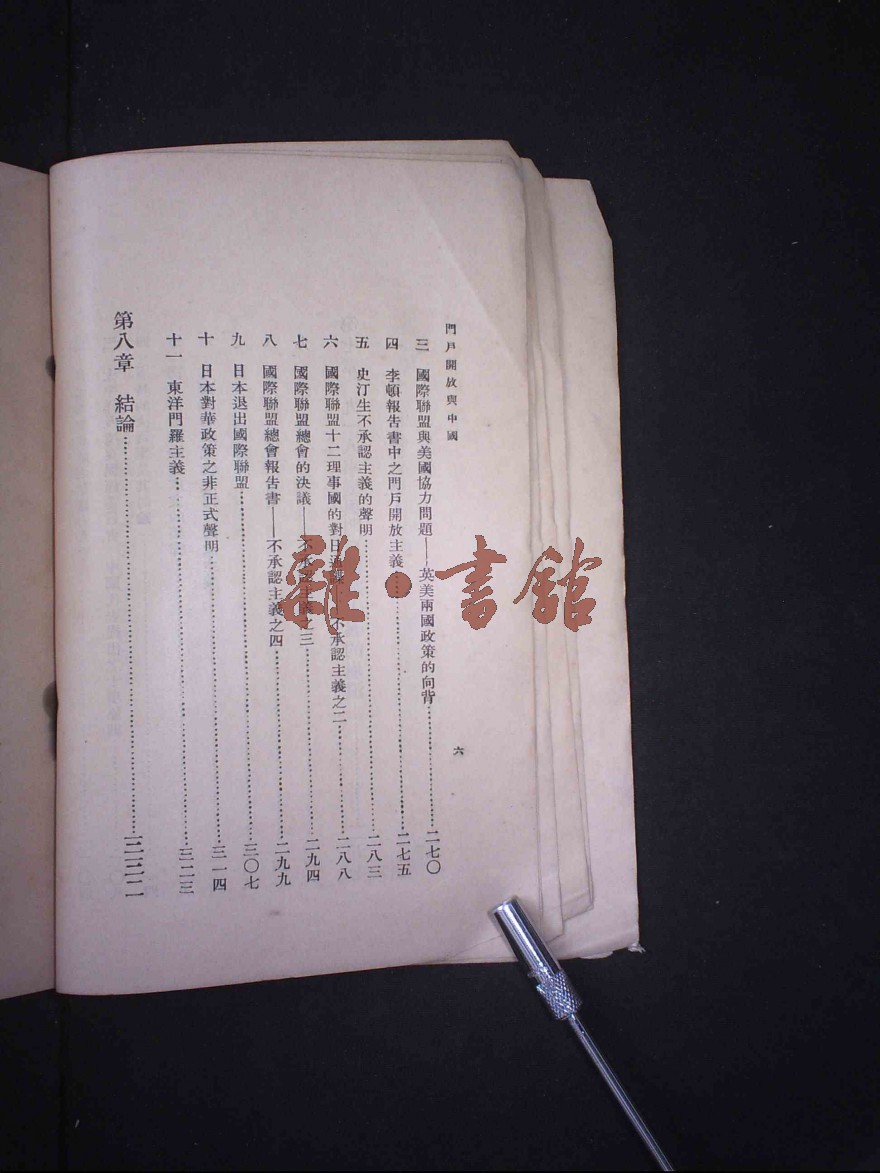 門戶開放與中國
六
三 國際聯盟與美國協力問題——英美兩國政策的向背………二七〇
四 李頓報告書中之門戶開放主義………二七五
五 史汀生不承認主義的聲明………二八三
六 國際聯盟十二理事國的對日——不承認主義之二………二八八
七 國際聯盟總會的決議——不承認主義之三………二九四
八 國際聯盟總會報告書——不承認主義之四………二九九
九 日本退出國際聯盟………三〇七
十 日本對華政策之非正式聲明………三一四
十一 東洋門羅主義………三二三
第八章 結論………
雜·書館